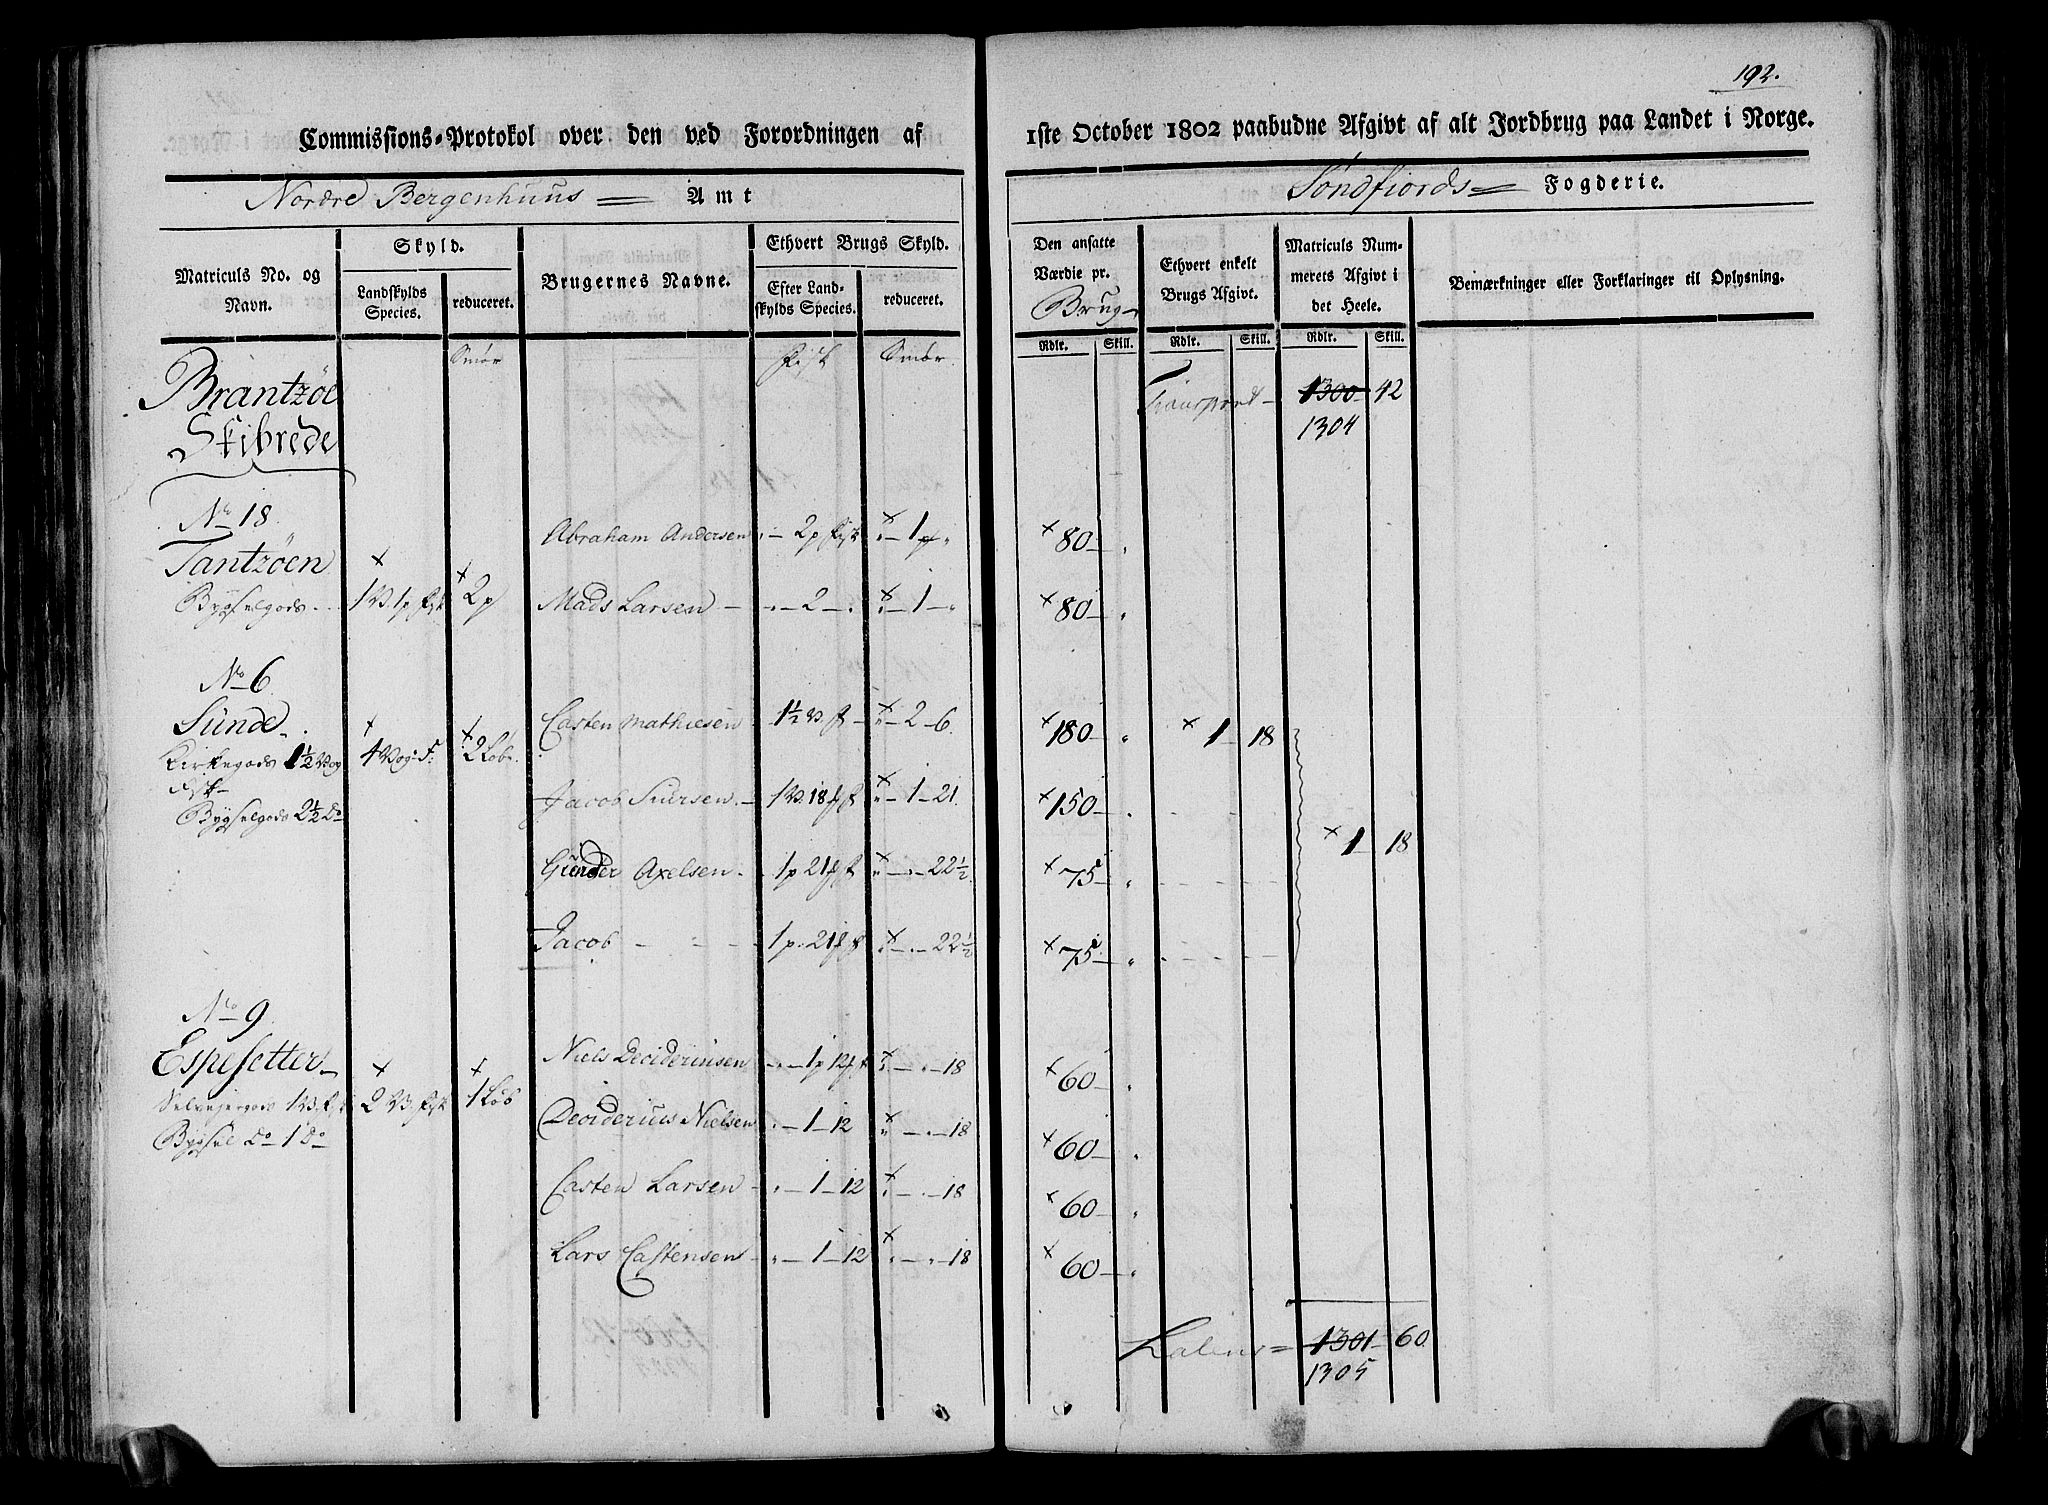 192.
Commissions-Protokol over den ved Forordningen af 1ste October 1802 paabudne Afgivt af alt Jordbrug paa Landet i Norge.
Nordre Bergenhuus Amt
Söndfiords Fogderie.
Matriculs No. og Navn.
Skyld.
Landskylds Species.
reduceret.
Brugernes Navne.
Ethvert Brugs Skyld.
Efter Landskylds Species.
reduceret.
Den ansatte Værdie pr. Brug
Ethvert enkelt Brugs Afgivt.
Matriculs Nummerets Afgivt i det Heele.
Bemærkninger eller Forklaringer til Oplysning.
Rdlr. Skill. Rdlr. Skill. Rdlr. Skill.
Smör Fisk Smör
Brantzöe
Skibrede
Transport - 1300 - 42
1304
No 18
Tantzöen
Bygselgods 1 V. 1 p fisk 2 p
Abraham Andersen " - 2 p fisk " - 1 p " 80 - "
Mads Larsen - " - 2 - " " - 1 - " 80 - "
No 6
Sunde
Kirkegods 1½ Vog fisk
Bygselgods 2½ do
4 Vog f: 2 Löb.
Casten Mathiesen 1½ V. f - " - 2 - 6. 180 - " 1 - 18
Jacob Siursen - 1 V. 18 f " - 1 - 21. 150 - "
1 - 18
Gunder Axelsen - 1 p 21 f " - " - 22½ 75 - "
Jacob - - - 1 p. 21 f " - " - 22½ 75 - "
No 9
Espesetter
Selvejergods 1 V. f
Bygsel do 1 do
2 V. fisk 1 Löb
Niels Decideriusen " - 1 p 12 f " - " - 18 60 - "
Deciderius Nielsen " - 1 - 12 " - " - 18 60 - "
Casten Larsen - " - 1 - 12 " - " - 18 60 - "
Lars Castensen - " - 1 - 12 " - " - 18 60 - "
Latus = 1301 - 60
1305